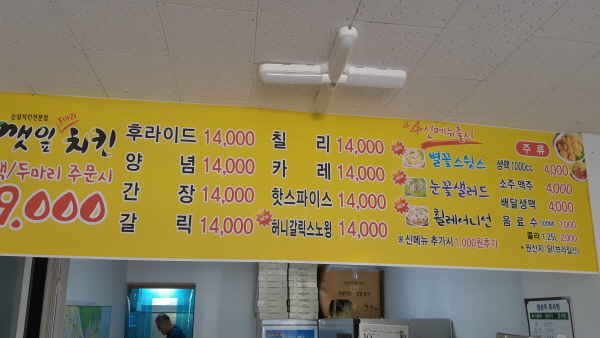 순살치킨전문점
깻잎 치킨
두마리
/두마리 주문시
9.000
후라이드 14,000
양 념 14,000
간 장 14,000
갈 릭 14,000
칠 리 14,000
카 레 14,000
핫스파이스 14,000
허니갈릭스노윙 14,000
신메뉴출시
별꽃스윙스
눈꽃샐러드
휠레어니언
※신메뉴 추가시 1,000원추가
주 류
생맥 1000cc 4,000
소주.맥주 4,000
배달생맥 4,000
음 료 수 500ML 1,000
콜라 1.25L 2,000
* 원산지:닭(브라질산)